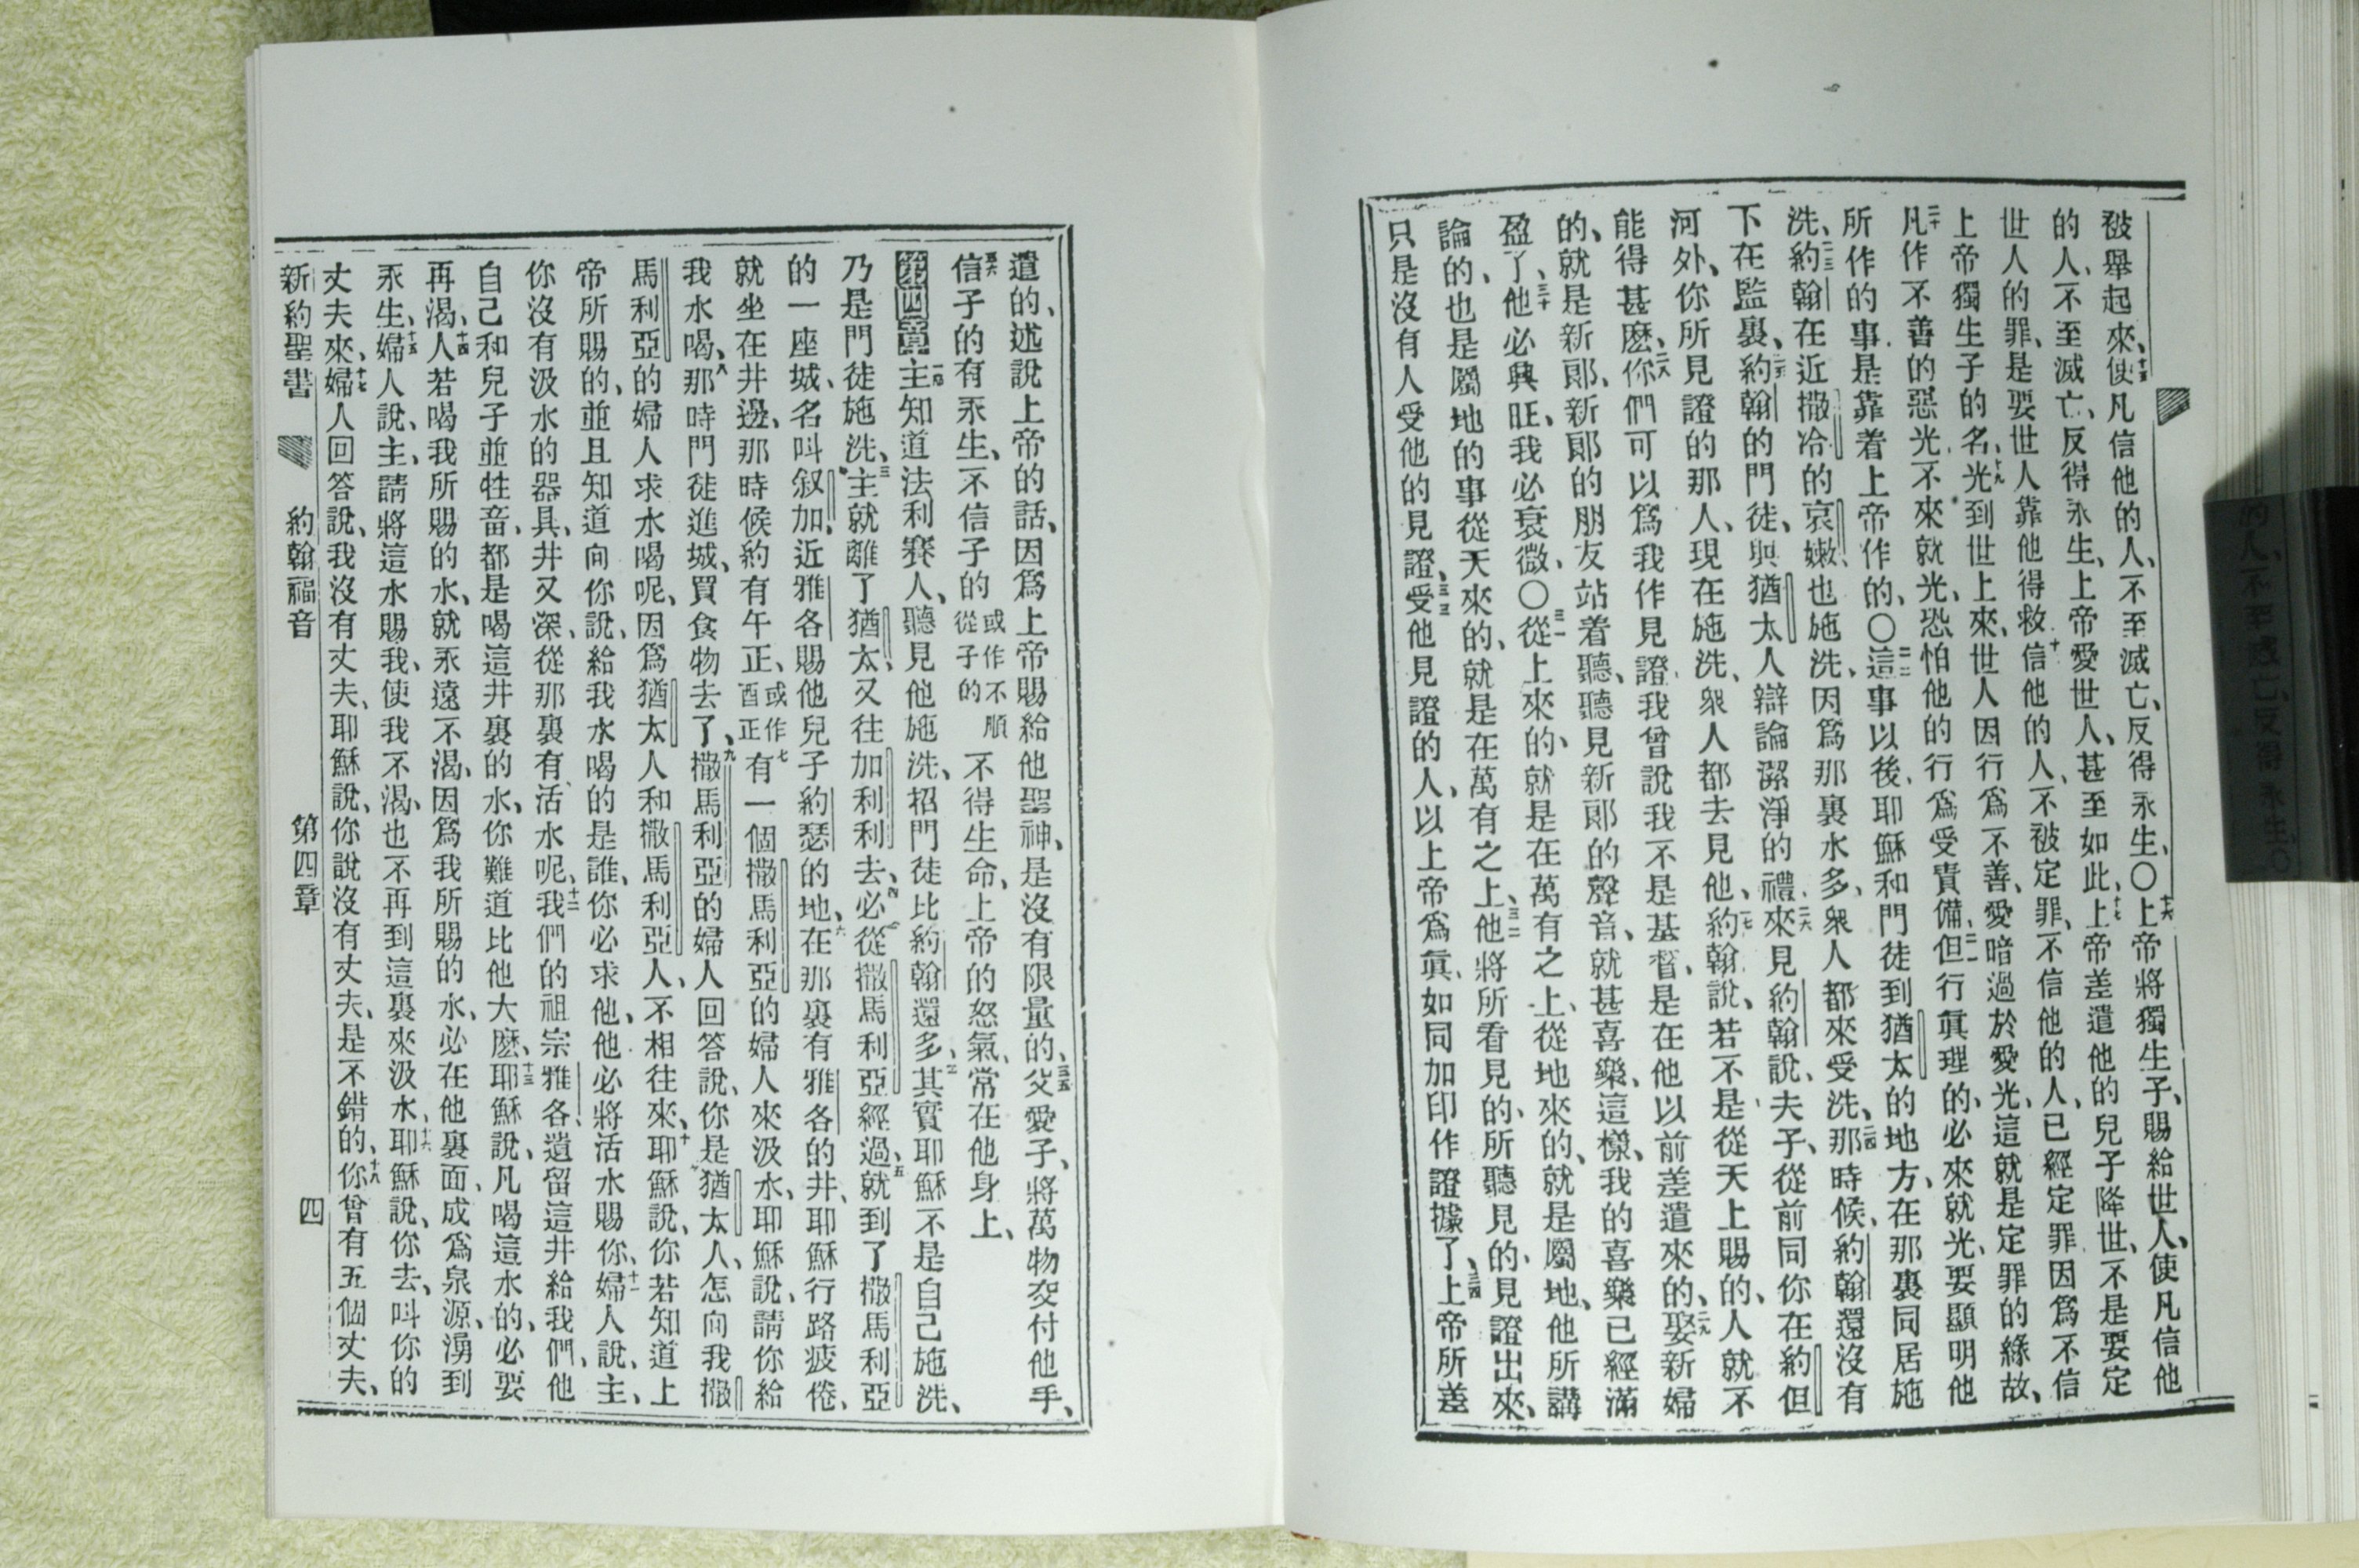 被舉起來、十五使凡信他的人、不至滅亡、反得永生、〇十六上帝將獨生子、賜給世人、使凡信他
的人、不至滅亡、反得永生、上帝愛世人、甚至如此、十七上帝差遣他的兒子降世、不是要定
世人的罪、是要世人靠他得救、十信他的人、不被定罪、不信他的人、已經定罪、因爲不信
上帝獨生子的名、十九光到世上來、世人因行爲不善、愛暗過於愛光、這就是定罪的緣故、
二十凡作不善的惡光、不來就光、恐怕他的行爲受責備、二一但行眞理的、必來就光、要顯明他
所作的事是靠着上帝作的、〇二二這事以後、耶穌和門徒到猶太的地方、在那裏同居施
洗、二三約翰在近撒冷的哀嫩也施洗、因爲那裏水多、衆人都來受洗、二四那時候、約翰還沒有
下在監裏、二五約翰的門徒、與猶太人辯論潔淨的禮、二六來見約翰說、夫子、從前同你在約但
河外、你所見證的那人、現在施洗、衆人都去見他、二七約翰說、若不是從天上賜的、人就不
能得甚麽、二八你們可以爲我作見證、我曾說我不是基督、是在他以前差遣來的、二九娶新婦
的、就是新郎、新郎的朋友站着聽、聽見新郎的聲音、就甚喜樂、這樣、我的喜樂已經滿
盈了、三十他必興旺、我必衰微、〇三一從上來的、就是在萬有之上、從地來的、就是屬地、他所講
論的、也是屬地的事、從天來的、就是在萬有之上、三二他將所看見的、所聽見的、見證出來、
只是沒有人受他的見證、三三受他見證的人、以上帝爲眞、如同加印作證據了、三四上帝所差
遣的、述說上帝的話、因爲上帝賜給他聖神、是沒有限量的、三五父愛子、將萬物交付他手、
三六信子的有永生、不信子的或作不順從子的不得生命、上帝的怒氣、常在他身上、
第四章一主知道法利賽人、聽見他施洗、招門徒比約翰還多、二其實耶穌不是自己施洗、
乃是門徒施洗、三主就離了猶太、又往加利利去、四必從撒馬利亞經過、五就到了撒馬利亞
的一座城、名叫叙加、近雅各賜他兒子約瑟的地、六在那裏有雅各的井、耶穌行路疲倦、
就坐在井邊、那時候約有午正、或作酉正七有一個撒馬利亞的婦人來汲水、耶穌說、請你給
我水喝、八那時門徒進城、買食物去了、九撒馬利亞的婦人回答說、你是猶太人、怎向我撒
馬利亞的婦人求水喝呢、因爲猶太人和撒馬利亞人、不相往來、十耶穌說、你若知道上
帝所賜的、並且知道向你說、給我水喝的是誰、你必求他、他必將活水賜你、十一婦人說、主、
你沒有汲水的器具、井又深、從那裏有活水呢、十二我們的祖宗雅各、遺留這井給我們、他
自己和兒子並牲畜、都是喝這井裏的水、你難道比他大麽、十三耶穌說、凡喝這水的、必要
再渴、十四人若喝我所賜的水、就永遠不渴、因爲我所賜的水、必在他裏面、成爲泉源、湧到
永生、十五婦人說、主、請將這水賜我、使我不渴、也不再到這裏來汲水、十六耶穌說、你去、叫你的
丈夫來、十七婦人回答說、我沒有丈夫、耶穌說、你說沒有丈夫、是不錯的、十八你曾有五個丈夫、
新約聖書 約翰福音 第四章 四